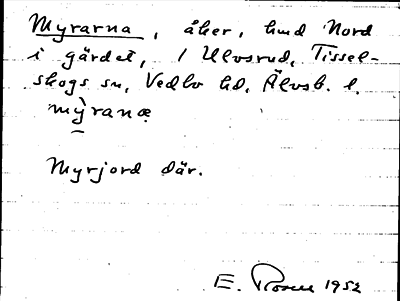 Myrarna, åker, hmd Nord
i gärdet, / Ulvsrud, Tissel-
skogs sn, Vedbo hd, Älvsb. l.
mỳranæ
Myrjord där.
E. Rosen 1952